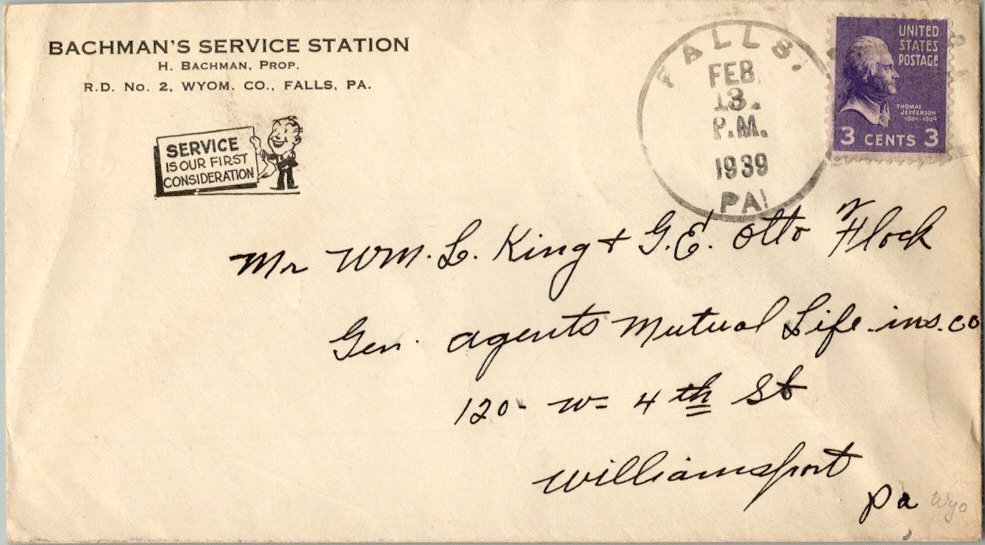 BACHMAN'S SERVICE STATION
H. BACHMAN, PROP.
R.D. NO. 2, WYOM. CO., FALLS, PA.
SERVICE
IS OUR FIRST
CONSIDERATION
FALLS,
FEB
13.
P.M.
1939
PA.
UNITED
STATES
POSTAGE
THOMAS
JEFFERSON
1801-1809
3 CENTS 3
Mr Wm. L. King & G. E. Otto Flock
Gen. agents Mutual Life ins. co
120- W- 4th St
Williamsport
Pa
Wyo